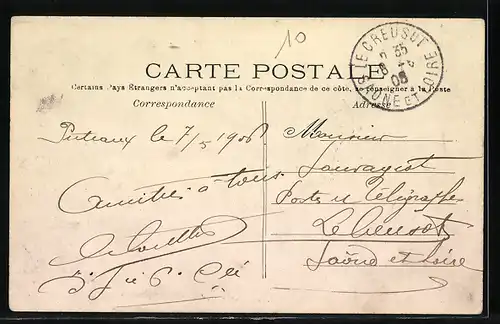 10
CARTE POSTALE
Certains Pays Étrangers n'acceptant pas la Correspondance de ce côté, se renseigner à la Poste
Correspondance
Adresse
LE CREUSOT
SAONE ET LOIRE
Puteaux le 7/5 1906
Amitiés à tous
Monsieur
Sauvageot
Postes et Télégraphe
Le Creusot
Saône et Loire